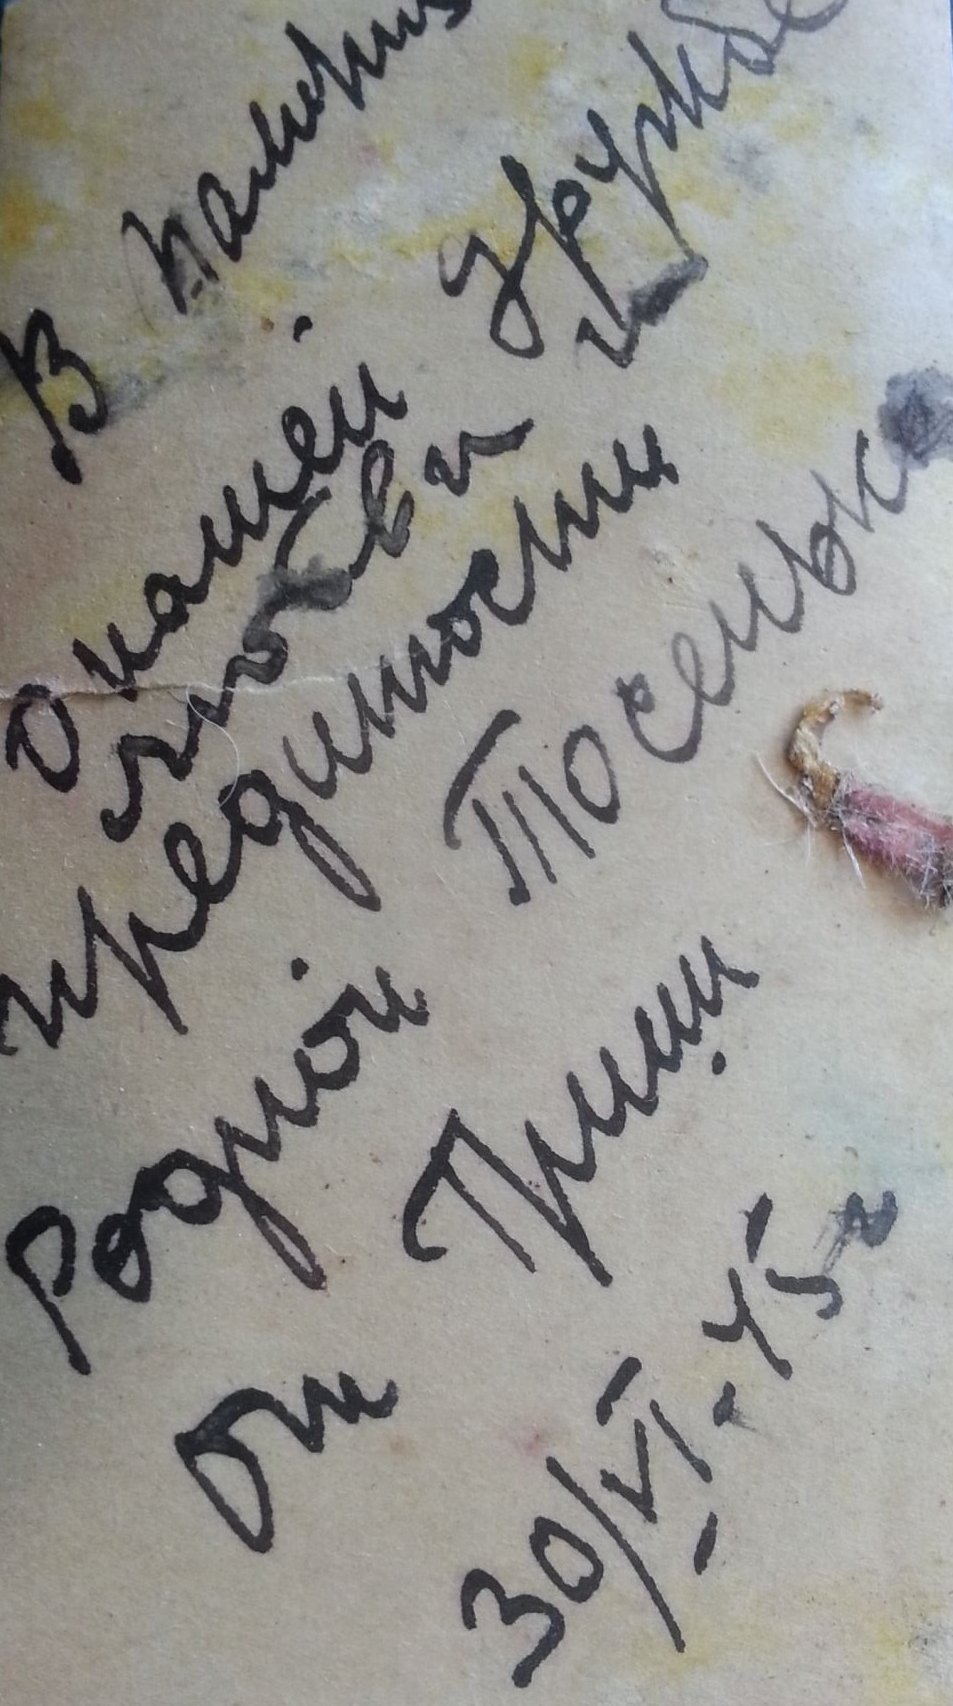 В память
о нашей дружбе
любви и
преданности
Родной Тосеньке
от Гриши
30/VI-45г